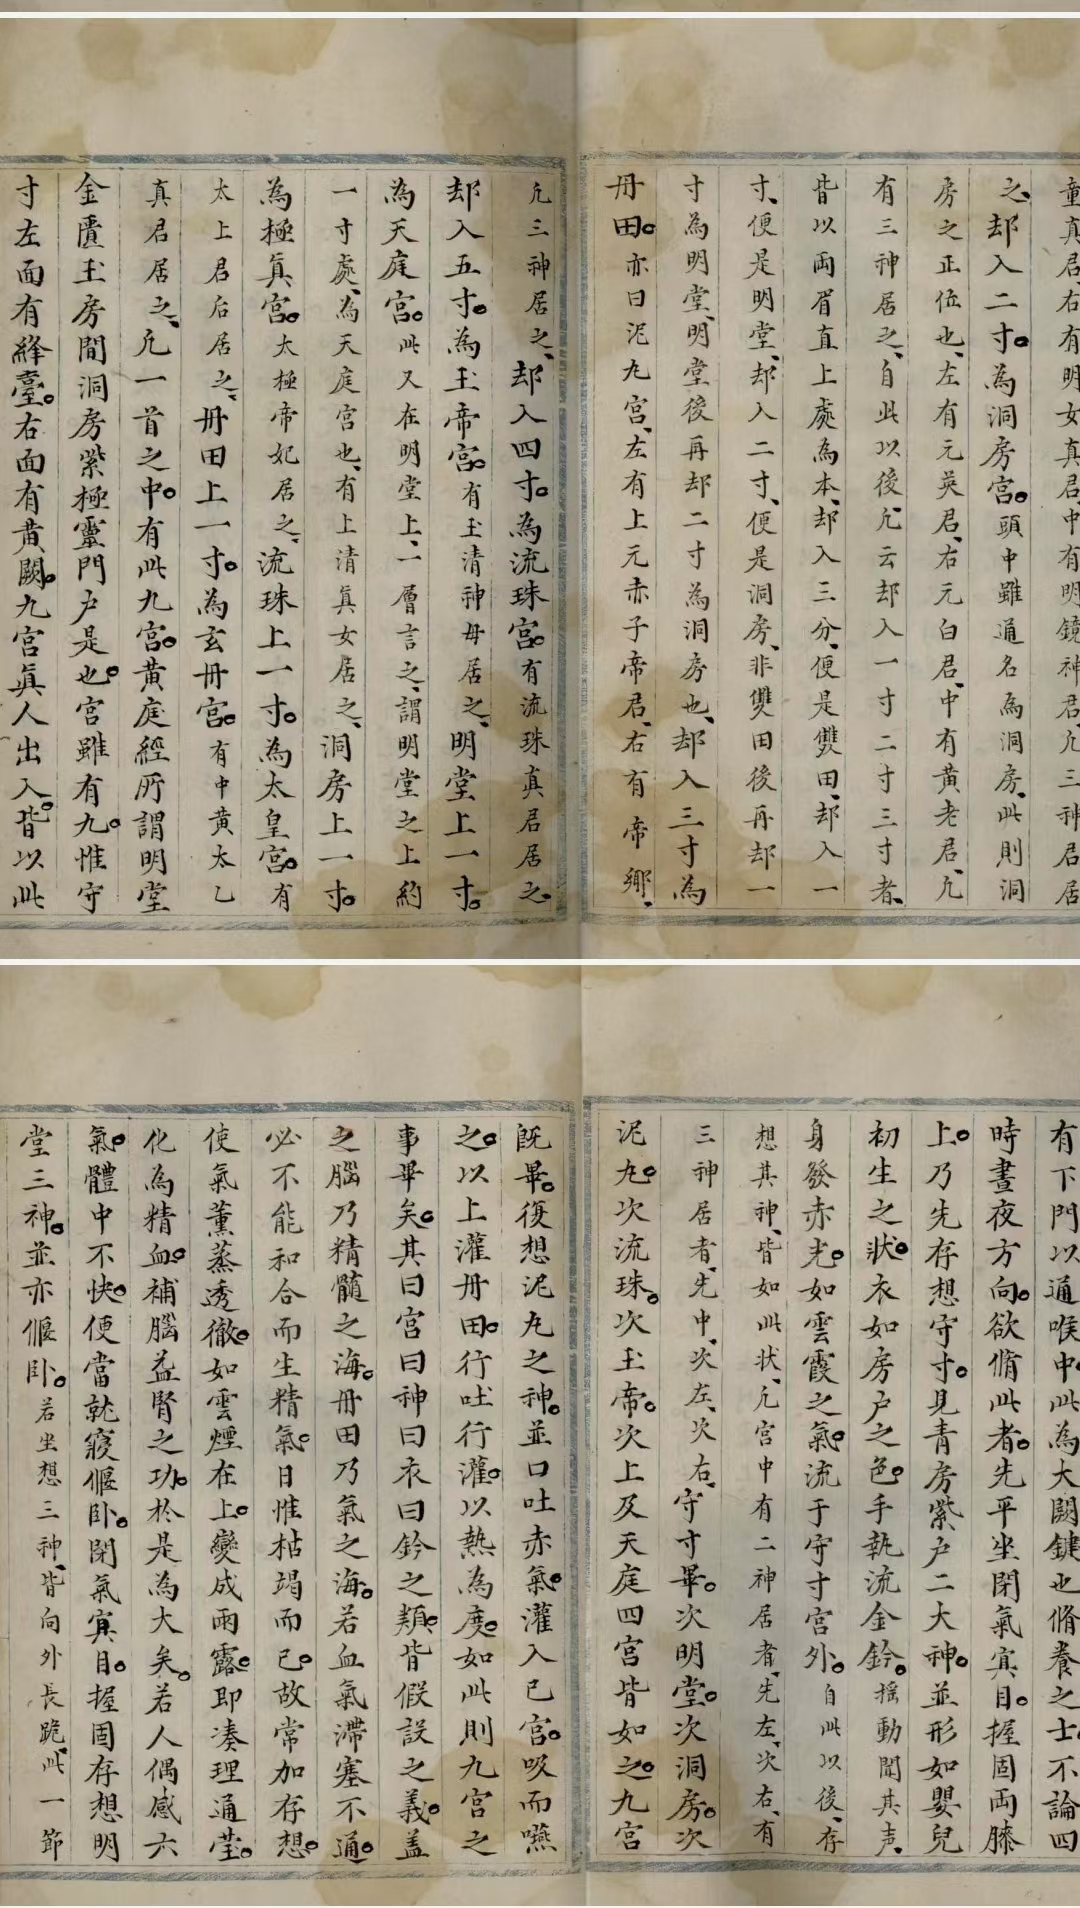 童真君、右有明女真君、中有明鏡神君、凢三神居
之、却入二寸。為洞房宮。頭中雖通名為洞房、此則洞
房之正位也、左有元英君、右元白君、中有黃老君、凢
有三神居之、自此以後、凢云却入一寸二寸三寸者、
皆以両眉直上處為本、却入三分、便是雙田、却入一
寸、便是明堂、却入二寸、便是洞房、非雙田後再却一
寸為明堂、明堂後再却二寸為洞房也、却入三寸為
丹田。亦曰泥丸宮、左有上元赤子帝君、右有帝鄉、
凢三神居之、却入四寸。為流珠宮。有流珠真君居之、
却入五寸。為玉帝宮。有玉清神母居之、明堂上一寸。
為天庭宮。此又在明堂上、一層言之、謂明堂之上約
一寸處、為天庭宮也、有上清真女居之、洞房上一寸。
為極真宮。太極帝妃居之、流珠上一寸。為太皇宮。有
太上君后居之、丹田上一寸。為玄丹宮。有中黃太乙
真君居之、凢一首之中。有此九宮。黃庭經所謂明堂
金匱玉房間洞房紫極靈門户是也。宮雖有九。惟守
寸左面有絳臺。右面有黃闕。九宮真人出入。皆以此
有下門以通喉中。此為大關鍵也脩養之士。不論四
時晝夜方向。欲脩此者。先平坐閉氣寘目。握固両膝
上。乃先存想守寸。見青房紫户二大神。並形如嬰兒
初生之狀。衣如房户之色。手執流金鈴。搖動聞其声、
身發赤光。如雲霞之氣。流于守寸宮外。自此以後、存
想其神、皆如此状、凢宮中有二神居者、先左、次右、有
三神居者、先中、次左、次右、守寸畢。次明堂。次洞房。次
泥丸。次流珠。次玉帝。次上及天庭四宮皆如之。九宮
既畢。復想泥丸之神。並口吐赤氣。灌入已宮。吸而嚥
之。以上灌丹田。行吐行灌。以熱為度。如此則九宮之
事畢矣。其曰宮曰神曰衣曰鈴之類。皆假設之義。盖
之腦乃精髓之海。丹田乃氣之海。若血氣滯塞不通。
必不能和合而生精氣。日惟枯竭而已。故常加存想。
使氣薰蒸透徹。如雲煙在上。變成雨露。即凑理通瑩。
化為精血。補腦益腎之功。於是為大矣。若人偶感六
氣。體中不快。便當就寢偃卧。閉氣寘目。握固存想明
堂三神。並亦偃卧。若坐想三神、皆向外長跪、此一節